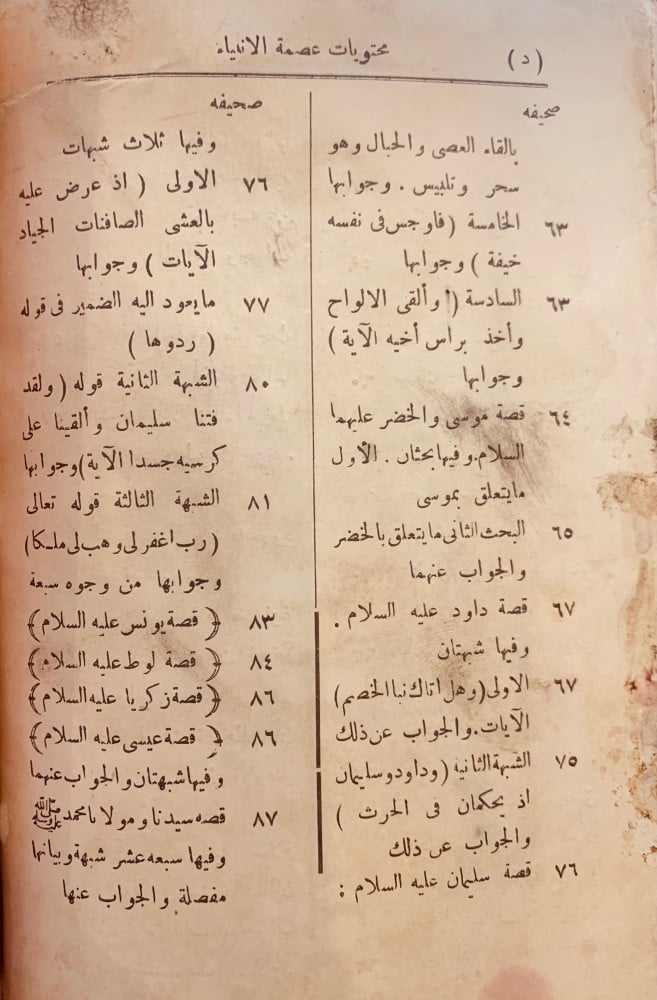 (د)
محتويات عصمة الانبياء
صحيفه
بالقاء العصى والحبال وهو
سحر وتلبيس . وجوابها
٦٣ الخامسة (فاوجس فى نفسه
خيفة ) وجوابها
٦٣ السادسة ( وألقى الالواح
وأخذ براس أخيه الآية )
وجوابها
٦٤ قصة موسى والخضر عليهما
السلام.وفيهابحثان . الأول
مايتعلق بموسى
٦٥ البحث الثانى مايتعلق بالخضر
والجواب عنهما
٦٧ قصة داود عليه السلام .
وفيها شبهتان
٦٧ الاولى(وهل اتاك نبا الخصم)
الآيات.والجواب عن ذلك
٧٥ الشبهة الثانية (وداود وسليمان
اذ يحكمان فى الحرث )
والجواب عن ذلك
٧٦ قصة سليمان عليه السلام :
صحيفه
وفيها ثلاث شبهات
٧٦ الاولى ( اذ عرض عليه
بالعشى الصافنات الجياد
الآيات ) وجوابها
٧٧ مايعود اليه الضمير فى قوله
( ردوها )
٨٠ الشبهة الثانية قوله ( ولقد
فتنا سليمان وألقينا على
كرسيه جسدا الآية)وجوابها
٨١ الشبهة الثالثة قوله تعالى
(رب اغفر لى وهب لى ملكا)
وجوابها من وجوه سبعة
٨٣ ﴿ قصة يونس عليه السلام ﴾
٨٤ ﴿ قصة لوط عليه السلام ﴾
٨٦ ﴿ قصة زكريا عليه السلام ﴾
٨٦ ﴿ قصة عيسى عليه السلام ﴾
وفيهاشبهتان والجواب عنهما
٨٧ قصه سيدنا ومولانا محمد ﷺ
وفيها سبعه عشر شبهة وبيانها
مفصلة والجواب عنها